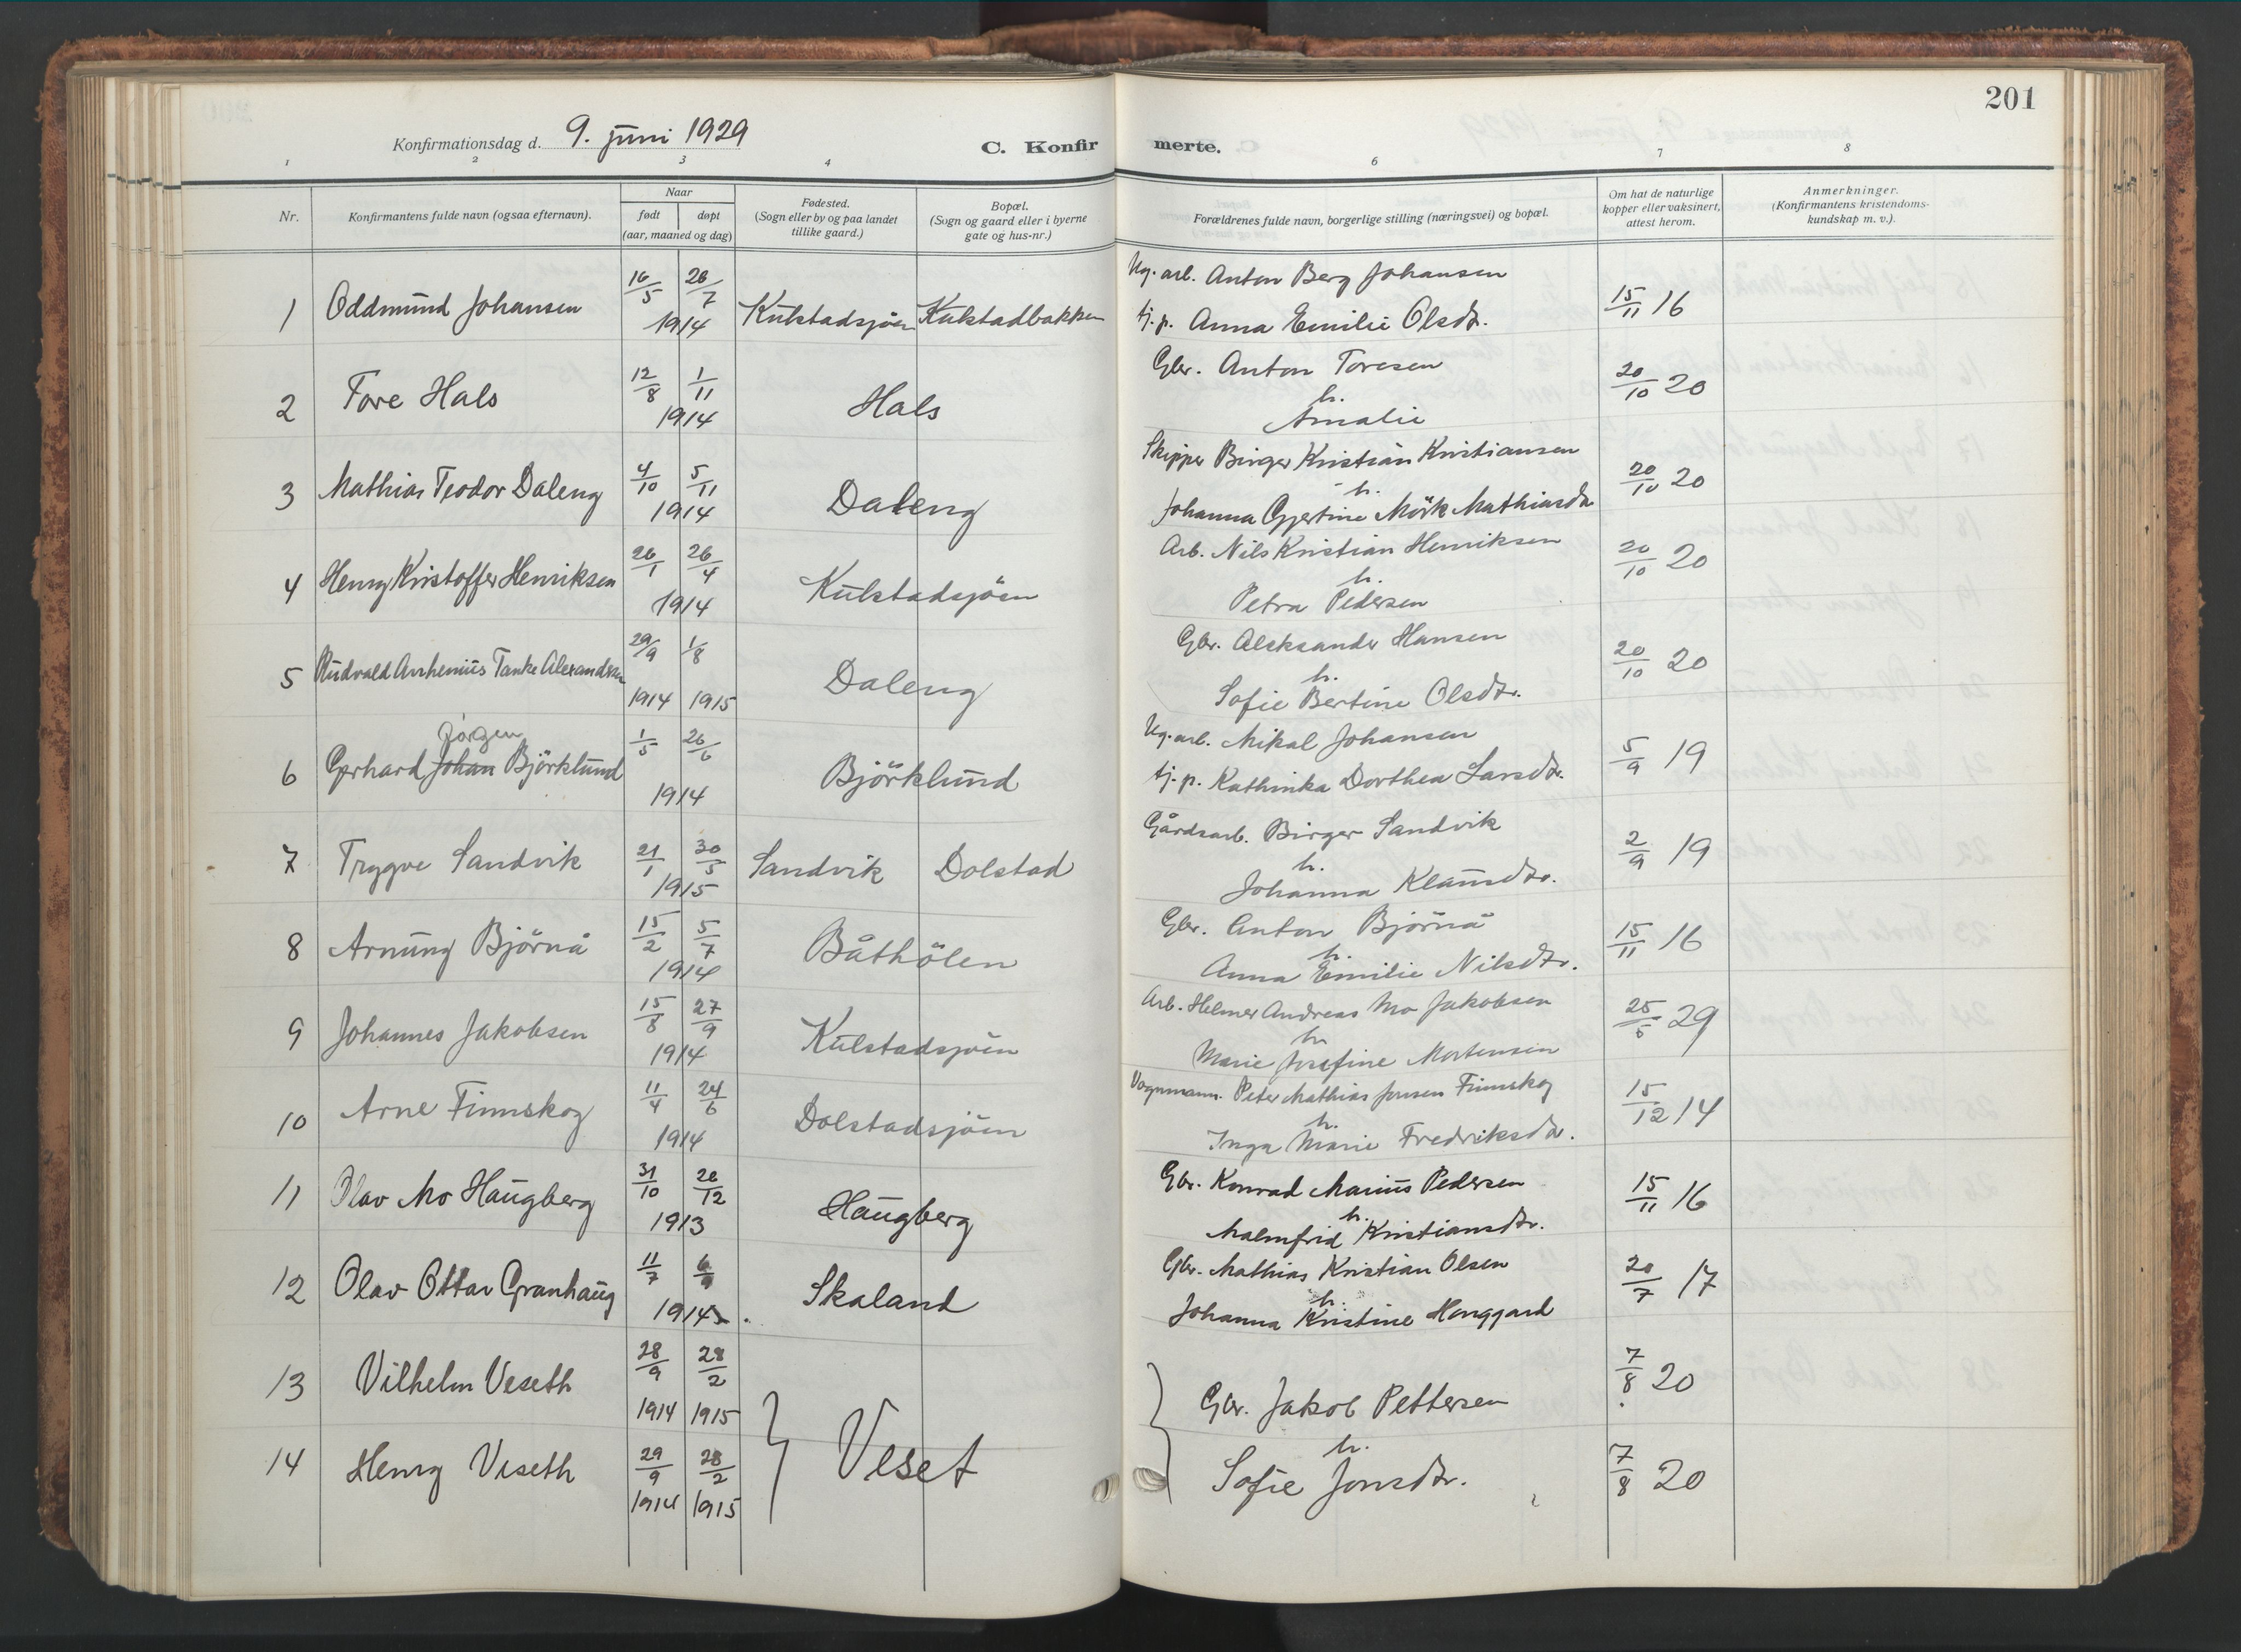 201
Konfirmationsdag d. 9. juni 1929
C. Konfirmerte.
1 2 3 4 6 7 8
Nr.
Konfirmantens fulde navn (ogsaa efternavn).
Naar
født
døpt
(aar, maaned og dag)
Fødested.
(Sogn eller by og paa landet
tillike gaard.)
Bopæl.
(Sogn og gaard eller i byerne
gate og hus-nr.)
Forældrenes fulde navn, borgerlige stilling (næringsvei) og bopæl.
Om hat de naturlige
kopper eller vaksinert,
attest herom.
Anmerkninger.
(Konfirmantens kristendoms-
kundskap m. v.).
1 Oddmund Johansen 16/5 28/7 1914 Kulstadsjöen Kulstadbakken
Ug. arb. Anton Berg Johansen
tj. p. Anna Emilie Olsdtr.
15/11 16
2 Tore Hals 12/8 1/11 1914 Hals
Gbr. Anton Toresen
h.
Amalie
20/10 20
3 Mathias Teodor Daleng 4/10 5/11 1914 Daleng
Skipper Birger Kristian Kristiansen
h.
Johanna Gjertine Mörk Mathiasdtr
20/10 20
4 Henry Kristoffer Henriksen 26/1 26/4 1914 Kulstadsjöen
Arb. Nils Kristian Henriksen
h.
Petra Pedersen
20/10 20
5 Rudvald Arrhenius Tanke Alexandsen 29/9 1/8 1914 1915 Daleng
Gbr. Aleksander Hansen
h.
Sofie Bertine Olsdtr.
20/10 20
Jörgen
6 Gerhard Johan Björklund 1/5 26/6 1914 Björklund
Ug. arb. Mikal Johansen
tj. p. Kathinka Dorthea Larsdtr.
5/9 19
7 Trygve Sandvik 21/1 30/5 1915 Sandvik Dolstad
Gårdsarb. Birger Sandvik
h.
Johanna Klausdtr.
2/9 19
8 Arnung Björnå 15/2 5/7 1914 Båthölen
Gbr. Anton Björnå
h.
Anna Emilie Nilsdtr.
15/11 16
9 Johannes Jakobsen 15/8 27/9 1914 Kulstadsjöen
Arb. Helmer Andreas Mo Jakobsen
h
Marie Josefine Mortensen
25/5 29
10 Arne Finnskog 11/4 24/6 1914 Dolstadsjöen
Vognmann. Peter Mathias Jensen Finnskog
h.
Inga Marie Fredriksdtr.
15/12 14
11 Olav Mo Haugberg 31/10 26/12 1913 Haugberg
Gbr. Konrad Marius Pedersen
h.
Malmfrid Kristiansdtr.
15/11 16
12 Olav Ottar Granhaug 11/7 6/9 1914 Skaland
Gbr. Mathias Kristian Olsen
h.
Johanna Kristine Honggard
20/7 17
13 Vilhelm Veseth 28/9 28/2 1914 1915
Gbr. Jakob Pettersen
7/8 20
Veset
14 Henry Veseth 29/9 28/2 1914 1915
h.
Sofie Jonsdtr.
7/8 20